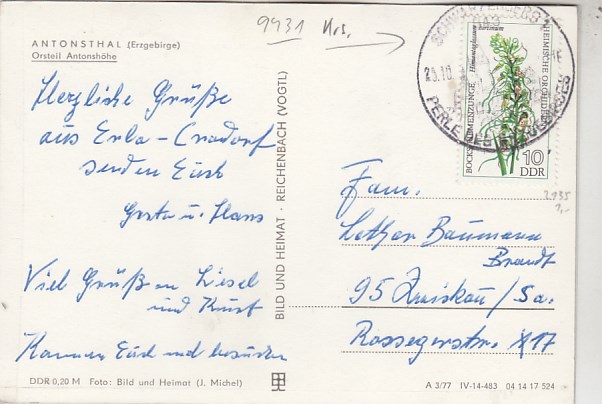 9431 Krs.
ANTONSTHAL (Erzgebirge)
Ortsteil Antonshöhe
Herzliche Grüße
aus Erla-Crandorf
senden Euch
Greta u. Hans
Viel Grüß an Liesel
und Kurt
Kommen Euch mal besuchen
DDR 0,20 M Foto: Bild und Heimat (J. Michel)
BILD UND HEIMAT · REICHENBACH (VOGTL)
SCHWARZENBERG
23.10.
PERLE DES ERZGEBIRGES
BOCKS-RIEMENZUNGE
Himantoglossum hircinum
HEIMISCHE ORCHIDEEN
10
DDR
2135
1,-
Fam.
Lothar Baumann
Brandt
95 Zwickau/Sa.
Rosseggerstr. 117
A 3/77 IV-14-483 04 14 17 524